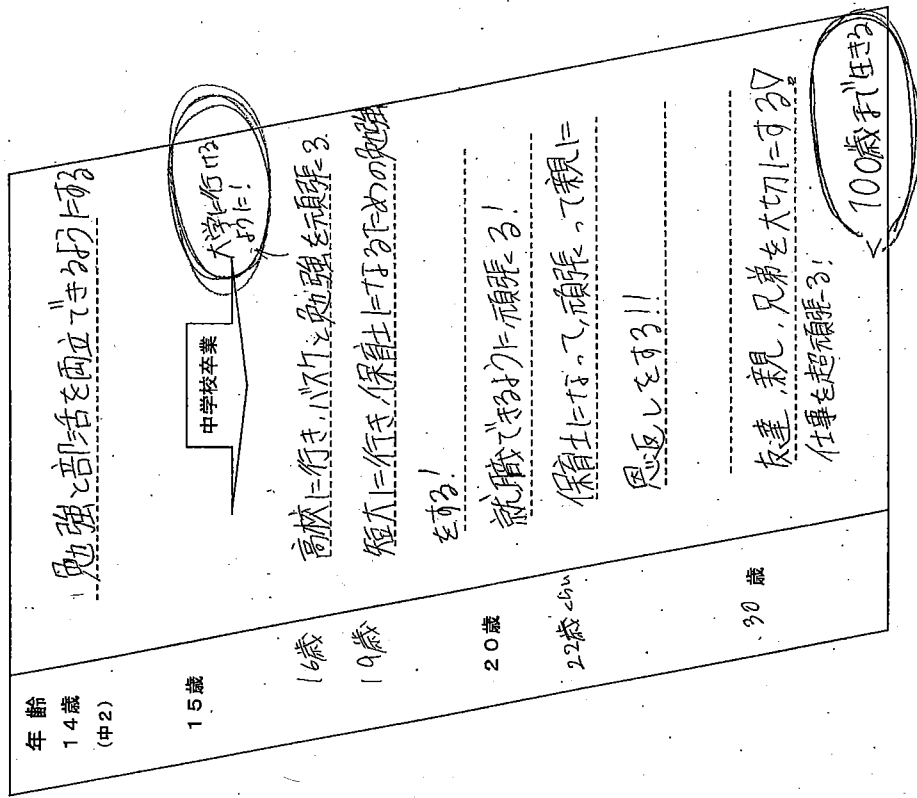 年齢
14歳
(中2)
勉強と部活を両立できるようにする
15歳
中学校卒業
大学に行ける
ように!
16歳 高校に行き、バスケと勉強を頑張る
19歳 短大に行き、保育士になるための勉強
をする!
20歳 就職できるように頑張る!
22歳くらい 保育士になって、頑張って親に
恩返しをする!!
30歳 友達、親、兄弟を大切にする♡
仕事を超頑張る!
100歳まで生きる